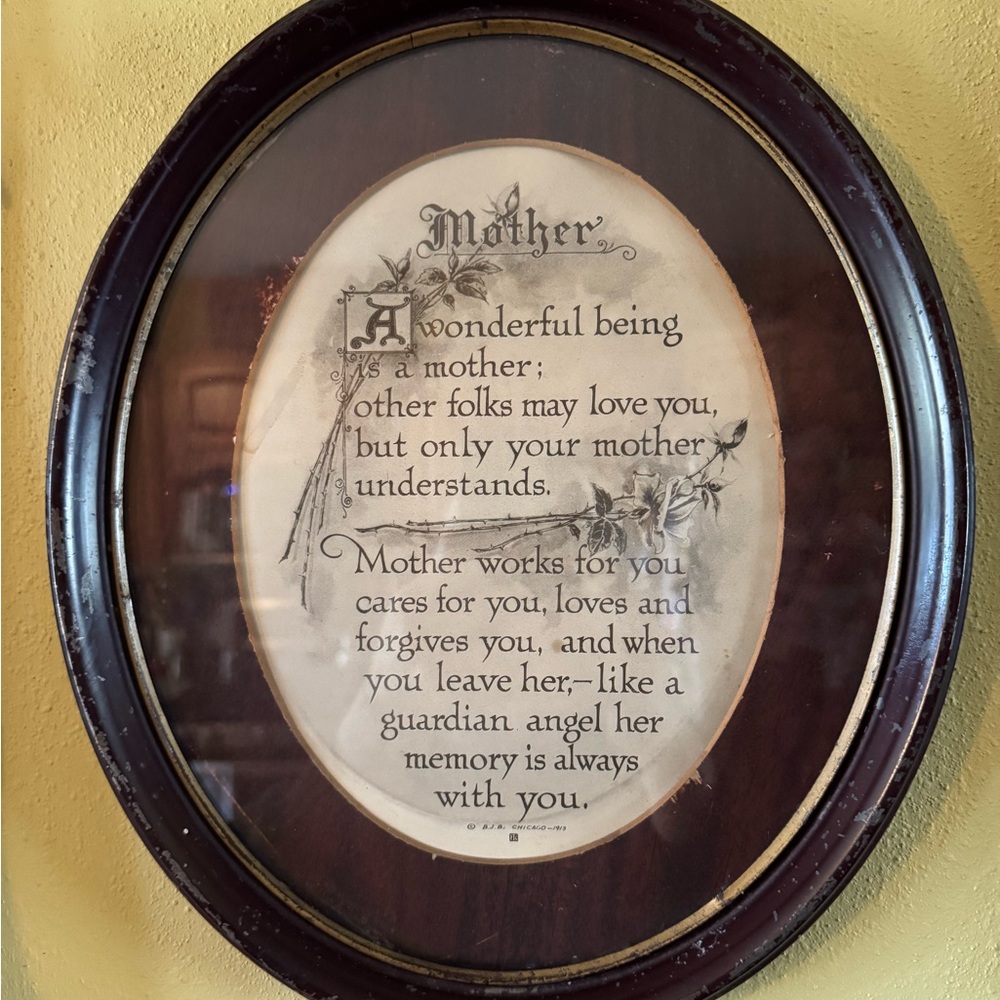 Mother
A wonderful being
is a mother;
other folks may love you,
but only your mother
understands.
Mother works for you
cares for you, loves and
forgives you, and when
you leave her,—like a
guardian angel her
memory is always
with you.
© B.J.B. CHICAGO–1913